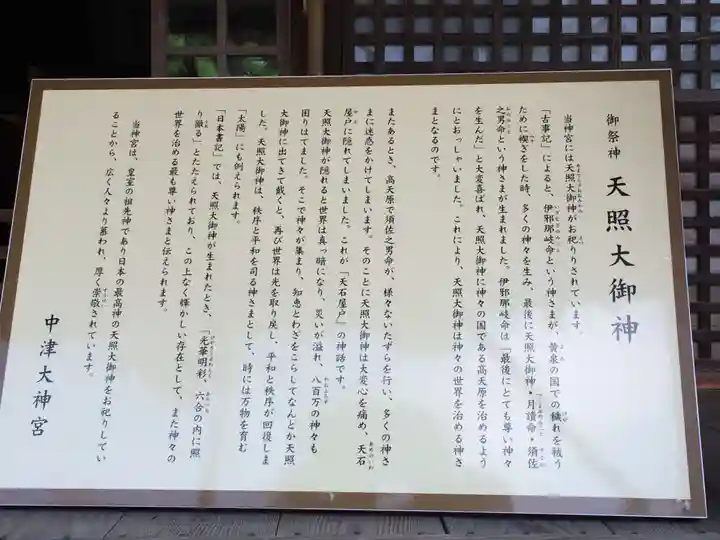 御祭神 天照大御神
当神宮には天照大御神がお祀りされています。
「古事記」によると、伊邪那岐命という神さまが、黄泉の国での穢れを祓う
ために禊ぎをした時、多くの神々を生み、最後に天照大御神・月讀命・須佐
之男命という神さまが生まれました。伊邪那岐命は「最後にとても尊い神々
を生んだ」と大変喜ばれ、天照大御神に神々の国である高天原を治めるよう
にとおっしゃいました。これにより、天照大御神は神々の世界を治める神さ
まとなるのです。
またあるとき、高天原で須佐之男命が、様々ないたずらを行い、多くの神さ
まに迷惑をかけてしまいます。そのことに天照大御神は大変心を痛め、天石
屋戸に隠れてしまいました。これが「天石屋戸」の神話です。
天照大御神が隠れると世界は真っ暗になり、災いが溢れ、八百万の神々も
困りはてました。そこで神々が集まり、知恵とわざをこらしてなんとか天照
大御神に出てきて戴くと、再び世界は光を取り戻し、平和と秩序が回復しま
した。天照大御神は、秩序と平和を司る神さまとして、時には万物を育む
「太陽」にも例えられます。
「日本書記」では、天照大御神が生まれたとき、「光華明彩、六合の内に照
り徹る」とたたえられており、この上なく輝かしい存在として、また神々の
世界を治める最も尊い神さまと伝えられます。
当神宮は、皇室の祖先神であり日本の最高神の天照大御神をお祀りしてい
ることから、広く人々より慕われ、厚く崇敬されています。
中津大神宮